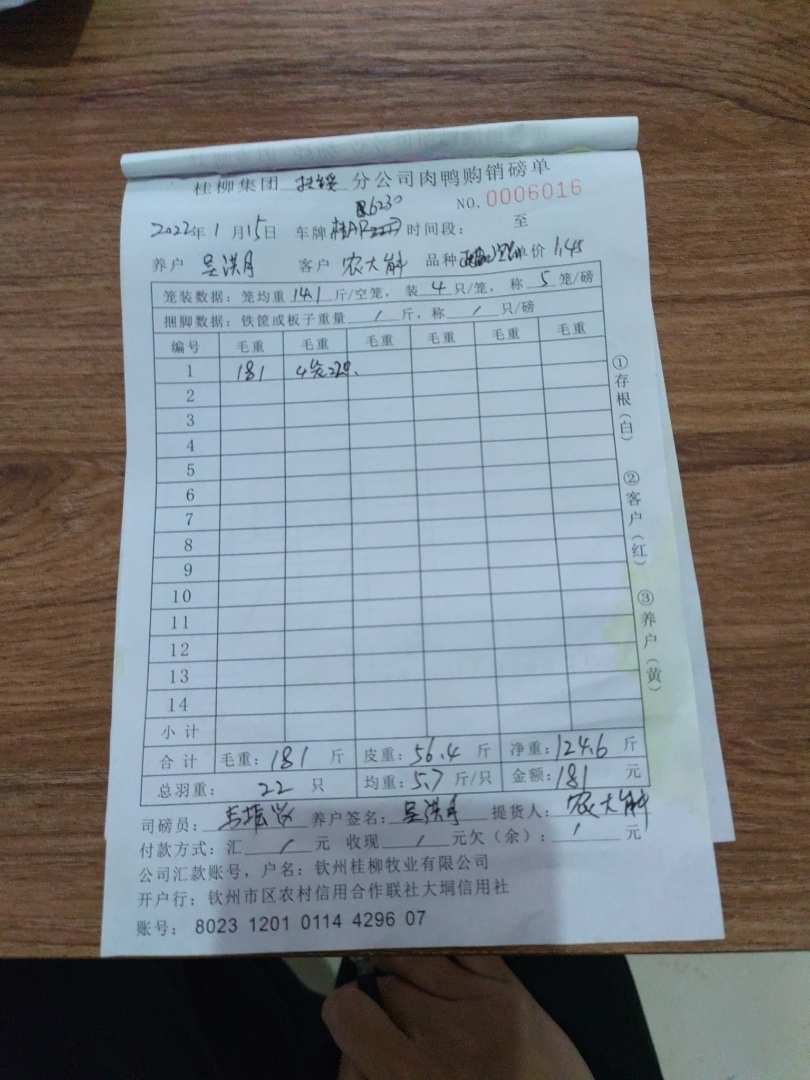 桂柳集团 扶绥 分公司肉鸭购销磅单
6230
NO.0006016
2022年1月15日 车牌 桂AR 时间段： 至
养户 吴洪月 客户 农大 品种 单价 1.45
笼装数据：笼均重 14.1 斤/空笼，装 4 只/笼，称 5 笼/磅
捆脚数据：铁筐或板子重量 / 斤，称 / 只/磅
编号 毛重 毛重 毛重 毛重 毛重 毛重
1 181 4笼22只
2
3
4
5
6
7
8
9
10
11
12
13
14
小计
合计 毛重：181 斤 皮重：56.4 斤 净重：124.6 斤
总羽重： 22 只 均重：5.7 斤/只 金额：181 元
司磅员： 养户签名：吴洪月 提货人：农大
付款方式：汇 / 元 收现 / 元欠（余）： / 元
公司汇款账号，户名：钦州桂柳牧业有限公司
开户行：钦州市区农村信用合作联社大垌信用社
账号： 8023 1201 0114 4296 07
①存根（白）
②客户（红）
③养户（黄）